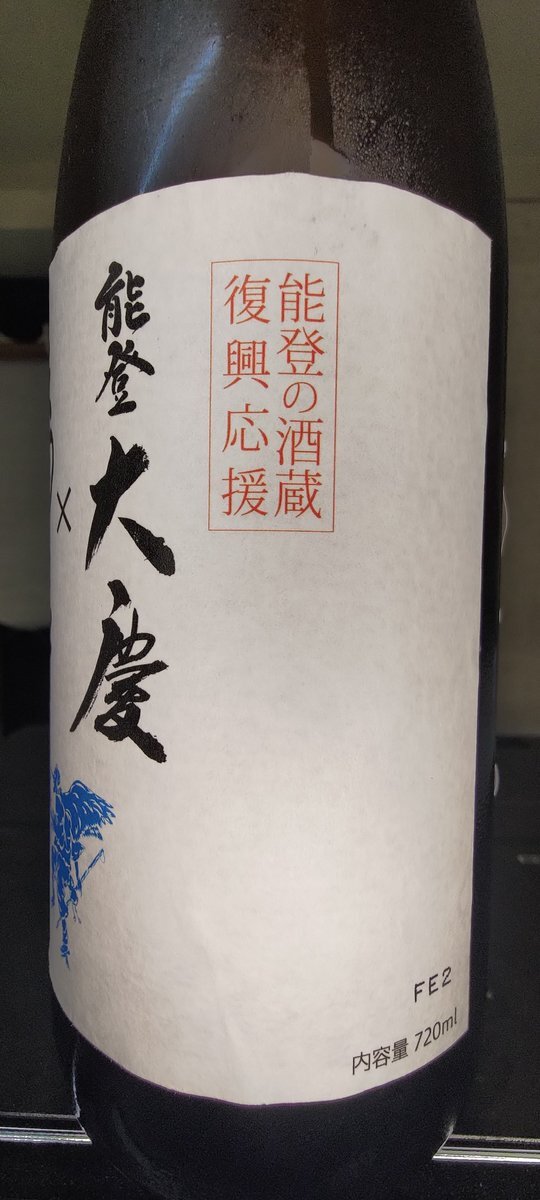 能登の酒蔵
復興応援
能登大慶
×
FE2
内容量 720ml